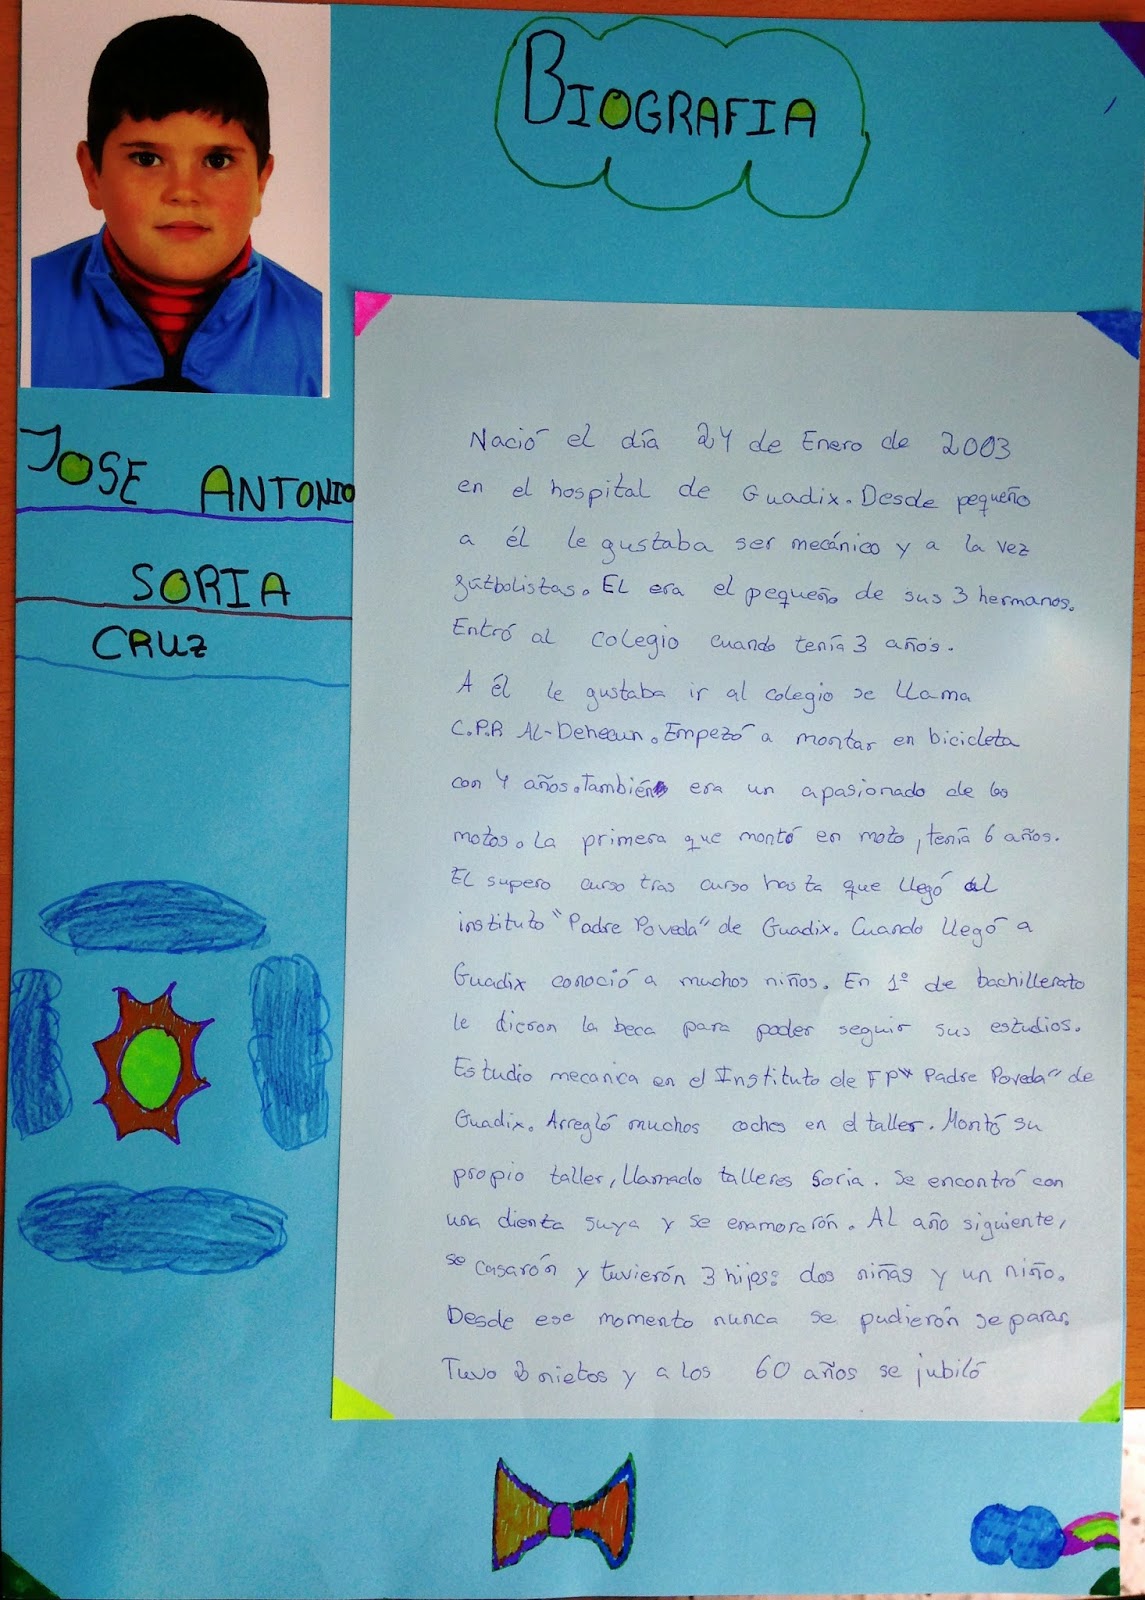 BIOGRAFIA
JOSE ANTONIO
SORIA
CRUZ
Nació el día 24 de Enero de 2003
en el hospital de Guadix. Desde pequeño
a él le gustaba ser mecánico y a la vez
fútbolistas. El era el pequeño de sus 3 hermanos.
Entró al colegio cuando tenía 3 años.
A él le gustaba ir al colegio se llama
C.P.R Al-Dehecun. Empezó a montar en bicicleta
con 4 años. También era un apasionado de las
motos. La primera que montó en moto, tenía 6 años.
El supero curso tras curso hasta que llegó al
instituto "Padre Poveda" de Guadix. Cuando llegó a
Guadix conoció a muchos niños. En 1º de bachillerato
le dieron la beca para poder seguir sus estudios.
Estudio mecanica en el Instituto de FP "Padre Poveda" de
Guadix. Arregló muchos coches en el taller. Montó su
propio taller, llamado talleres Soria. Se encontró con
una clienta suya y se enamorarón. Al año siguiente,
se casarón y tuvierón 3 hijos: dos niñas y un niño.
Desde ese momento nunca se pudierón separar.
Tuvo nietos y a los 60 años se jubiló